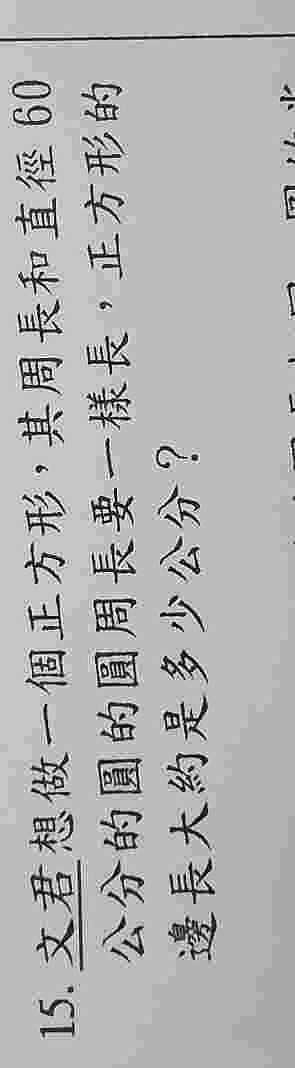 15. 文君想做一個正方形，其周長和直徑 60
公分的圓的圓周長要一樣長，正方形的
邊長大約是多少公分？